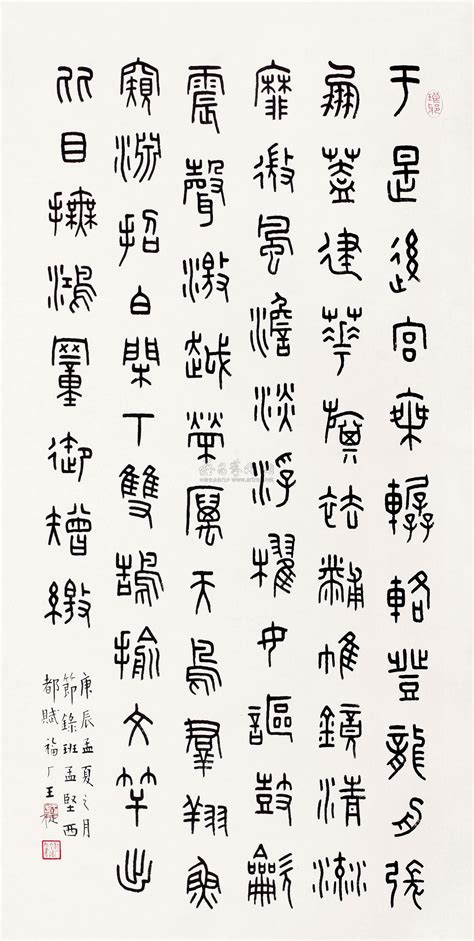 于是後宮乘轏輅登龍舟張
鳳蓋建華旗祛黼帷鏡清流
靡微風澹淡浮櫂女謳鼓龡
震聲激越榮厲天鳥羣翔魚
窺淵招白閑下雙鵠揄文竿出
比目撫鴻罿御矰繳
庚辰孟夏之月
節錄班孟堅西
都賦 福厂王禔